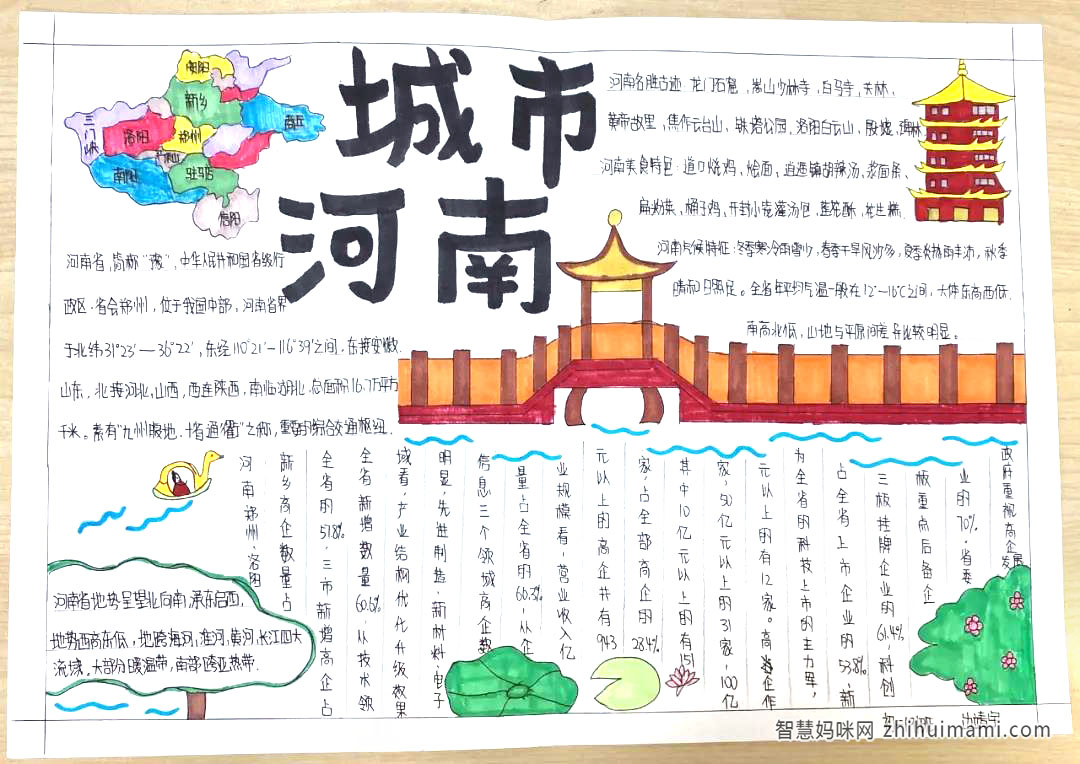 城市
河南
安阳
新乡
三门峡
洛阳
郑州
商丘
平顶山
南阳
驻马店
信阳
河南省,简称“豫”,中华人民共和国省级行
政区.省会郑州,位于我国中部,河南省界
于北纬31°23′—36°22′,东经110°21′—116°39′之间,东接安徽.
山东,北接河北,山西,西连陕西,南临湖北.总面积16.7万平方
千米。素有“九州腹地.十省通衢”之称,重要的综合交通枢纽.
河南名胜古迹 龙门石窟,嵩山少林寺,白马寺,关林,
黄帝故里,焦作云台山,铁塔公园,洛阳白云山,殷墟,
河南美食特色:道口烧鸡、烩面、逍遥镇胡辣汤、浆面条、
扁粉菜、桶子鸡、开封小笼灌汤包、莲花酥、花生糕.
河南气候特征:冬季寒冷雨雪少,春季干旱风沙多,夏季炎热雨丰沛,秋季
晴和日照足。全省年平均气温一般在12°—16℃之间,大体东高西低.
南高北低,山地与平原间差异比较明显。
政府重视高企发展
业的70%.省委
板重点后备企
三板挂牌企业的61.4%,科创
占全省上市企业的53.8%,新
为全省的科技上市的主力军,
元以上的有12家。高企作
家,50亿元以上的31家,100亿
其中10亿元以上的有151
家,占全部高企的28.4%
元以上的高企共有943
业规模看,营业收入亿
量占全省的60.3%,从企
信息三个领域高企数
明显,先进制造、新材料、电子
域看,产业结构优化升级效果
全省新增数量60.6%,从技术领
全省的57.8%,三市新增高企占
新乡高企数量占
河南郑州、洛阳
河南省地势呈望北向南,承东启西,
地势西高东低,地跨海河,淮河,黄河,长江四大
流域.大部分暖温带,南部跨亚热带.
智慧妈咪网 zhihuimami.com